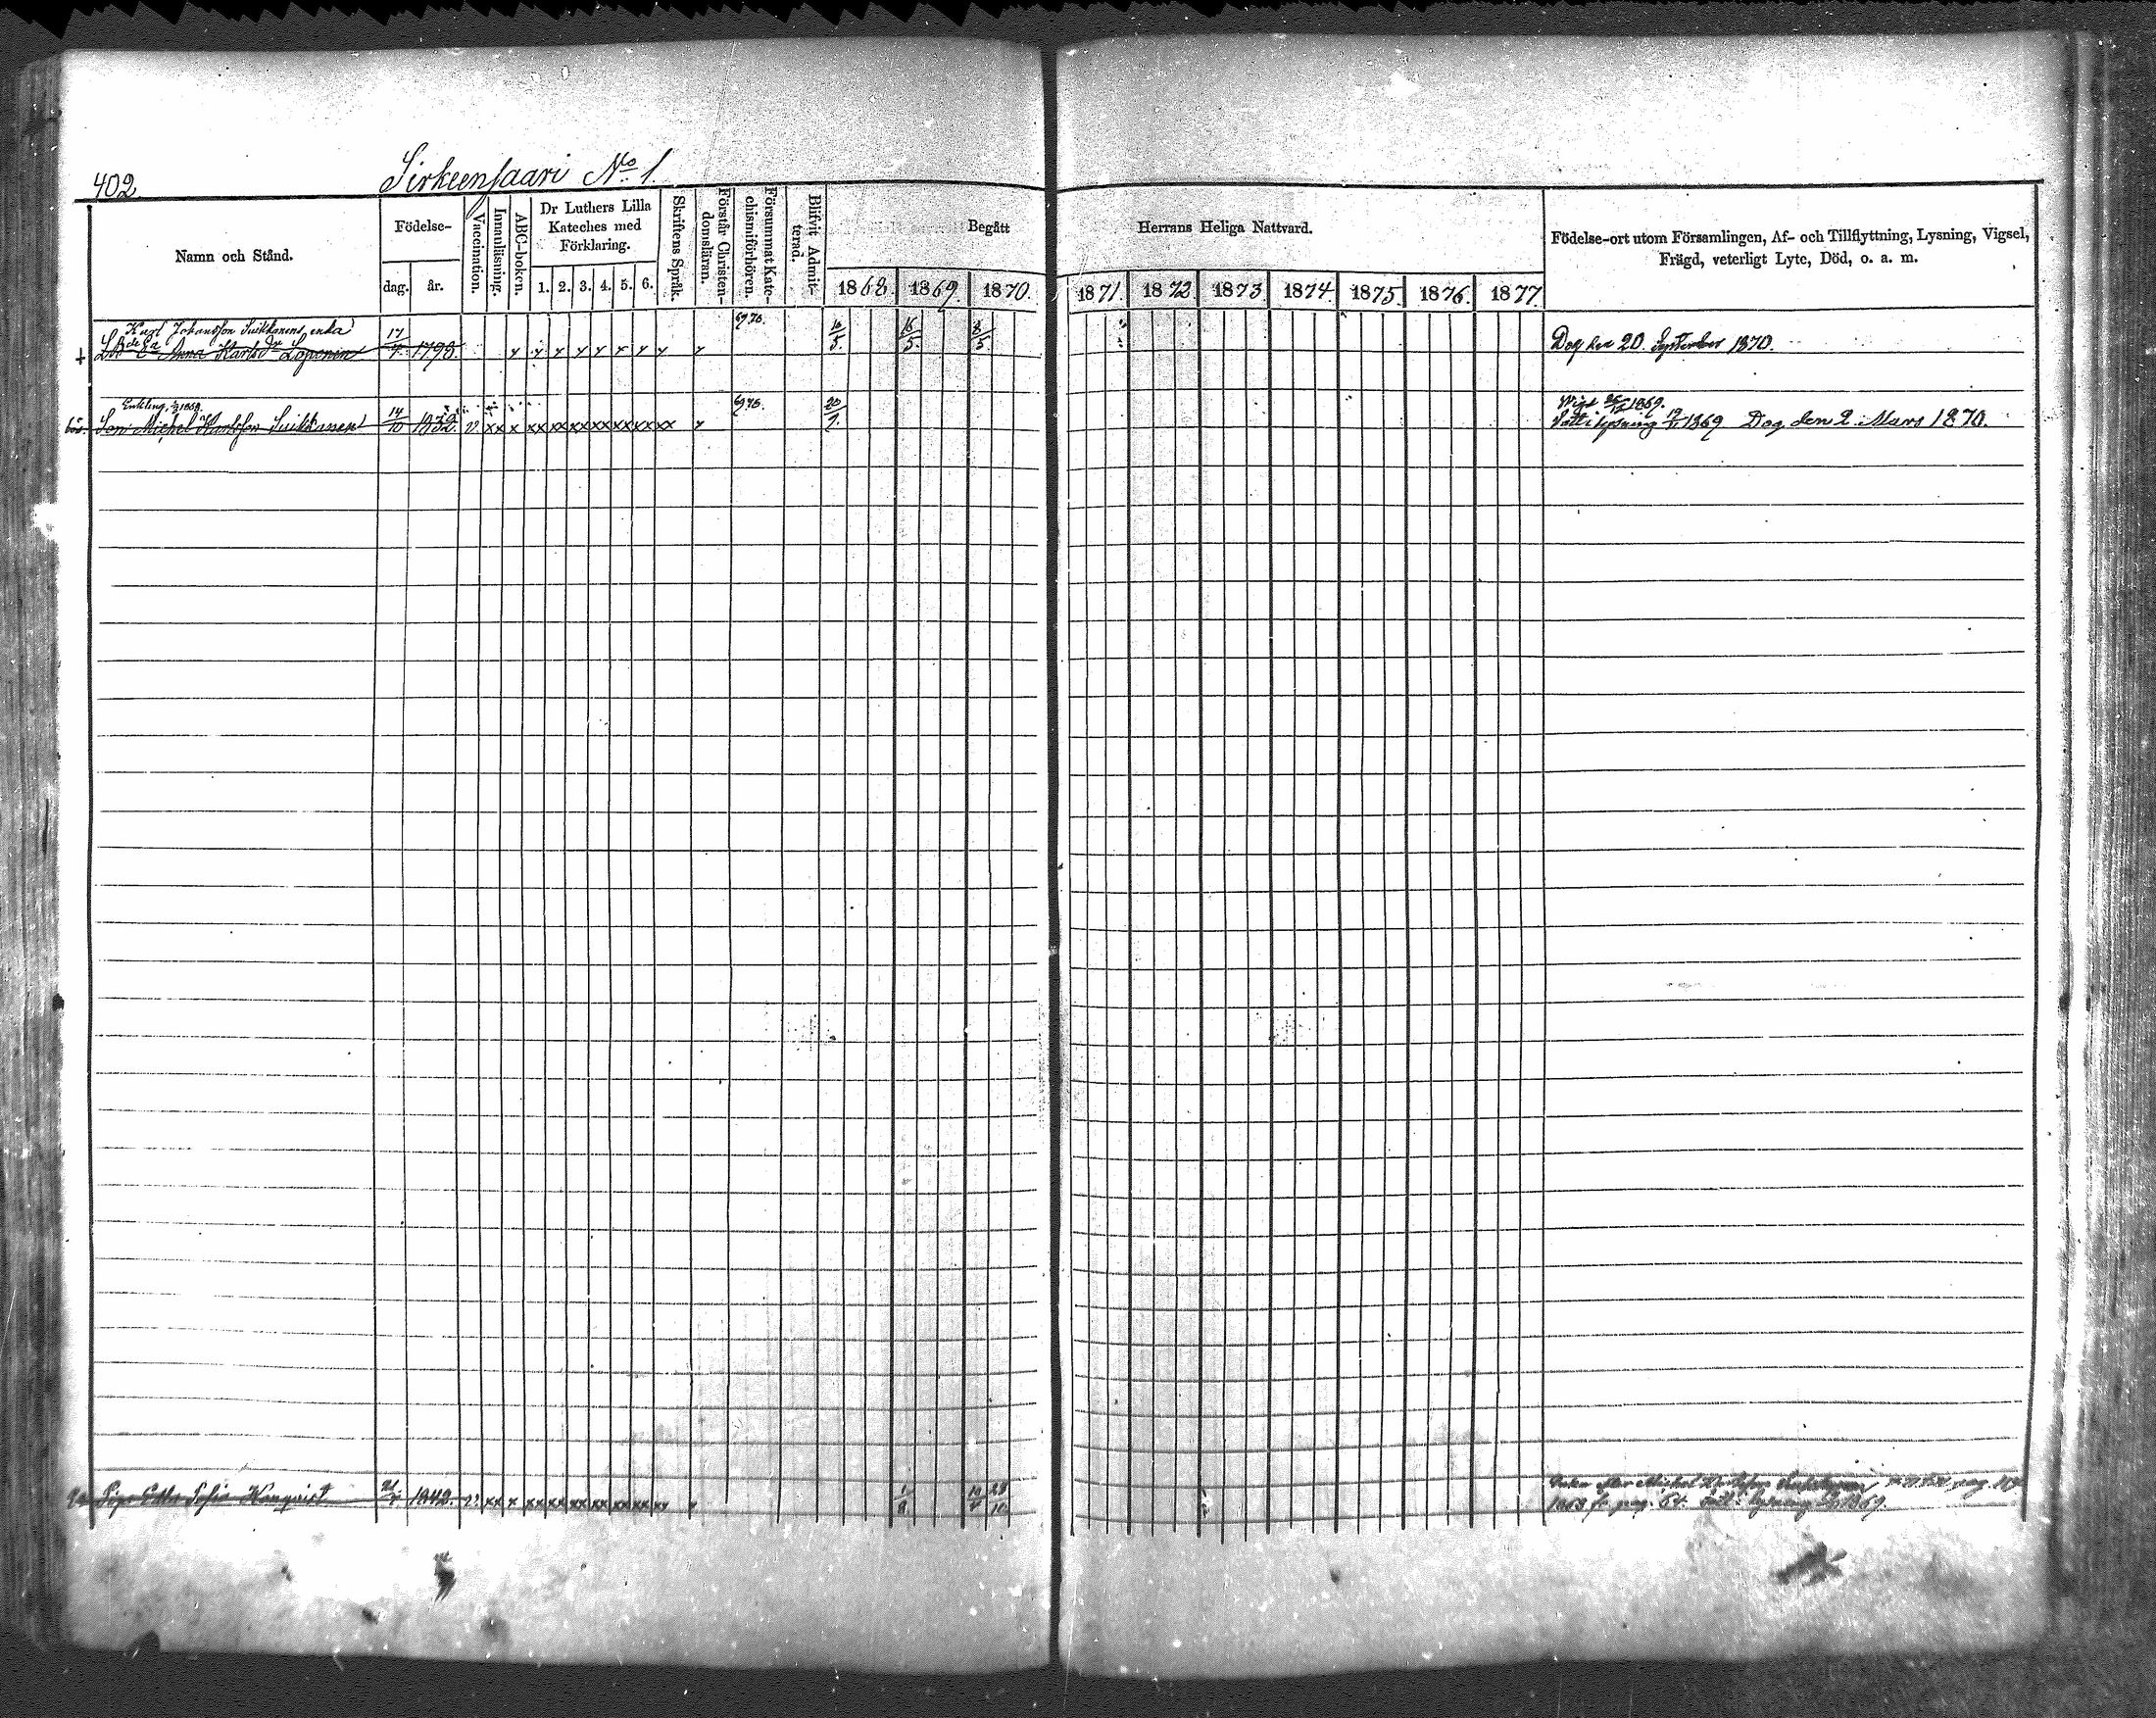 402.
Sirkeensaari No 1.
Namn och Stånd.
Födelse-
dag. år.
Vaccination.
Innanläsning.
ABC-boken.
Dr Luthers Lilla
Kateches med
Förklaring.
1. 2. 3. 4. 5. 6.
Skriftens Språk.
Förstår Christen-
domsläran.
Försummat Kate-
chismiförhören.
Blifvit Admit-
terad.
Begått
Herrans Heliga Nattvard.
1868. 1869. 1870.
1871. 1872 1873 1874 1875. 1876. 1877
Födelse-ort utom Församlingen, Af- och Tillflyttning, Lysning, Vigsel,
Frägd, veterligt Lyte, Död, o. a. m.
Karl Johansson Suikkanens enka
Anna Karlsdr Loponen 17/4 1798. 10/5. 16/5. 8/5. Dog den 20. September 1870.
Enkling 1868. Vigd 26/12 1869.
Son Michel Karlsson Suikkanen 14/10 1832. v. xx x xx xx xx xx xx xx xx 20/9. lysning 1869 Dog den 2 Mars 1870.
Sofia 1842. v. xx x xx xx xx xx xx xx xx
Enkan efter Michel pag.
1869 fr. pag. lysning 1869.